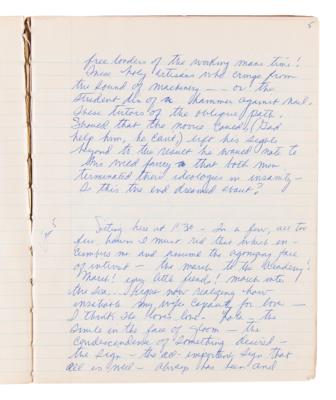 5
free loaders of the working mans time!
These holy artisans who cringe from
the sound of machinery — or the
strident din of a hammer against nail.
These tutors of the oblique path.
Should that the novice (God
help him, he can't) lift his sights
beyond to the result he would note to
this wild fancy that both men
terminated their ideologies in insanity —
Is this the end dreamed about?
Sitting here at 9:30 — In a few, all too
few hours I must rid that which en-
cumbers me and assume the agonizing face
of interest — the march to the
March! you little fiend! march into
the sea. I begin now realizing how
insatiable my wife capacity for love —
I think she loves love. — the
smile in the face of gloom — the
condescendence of something desired —
the sign — the all-important sign that
all is well — always has been and